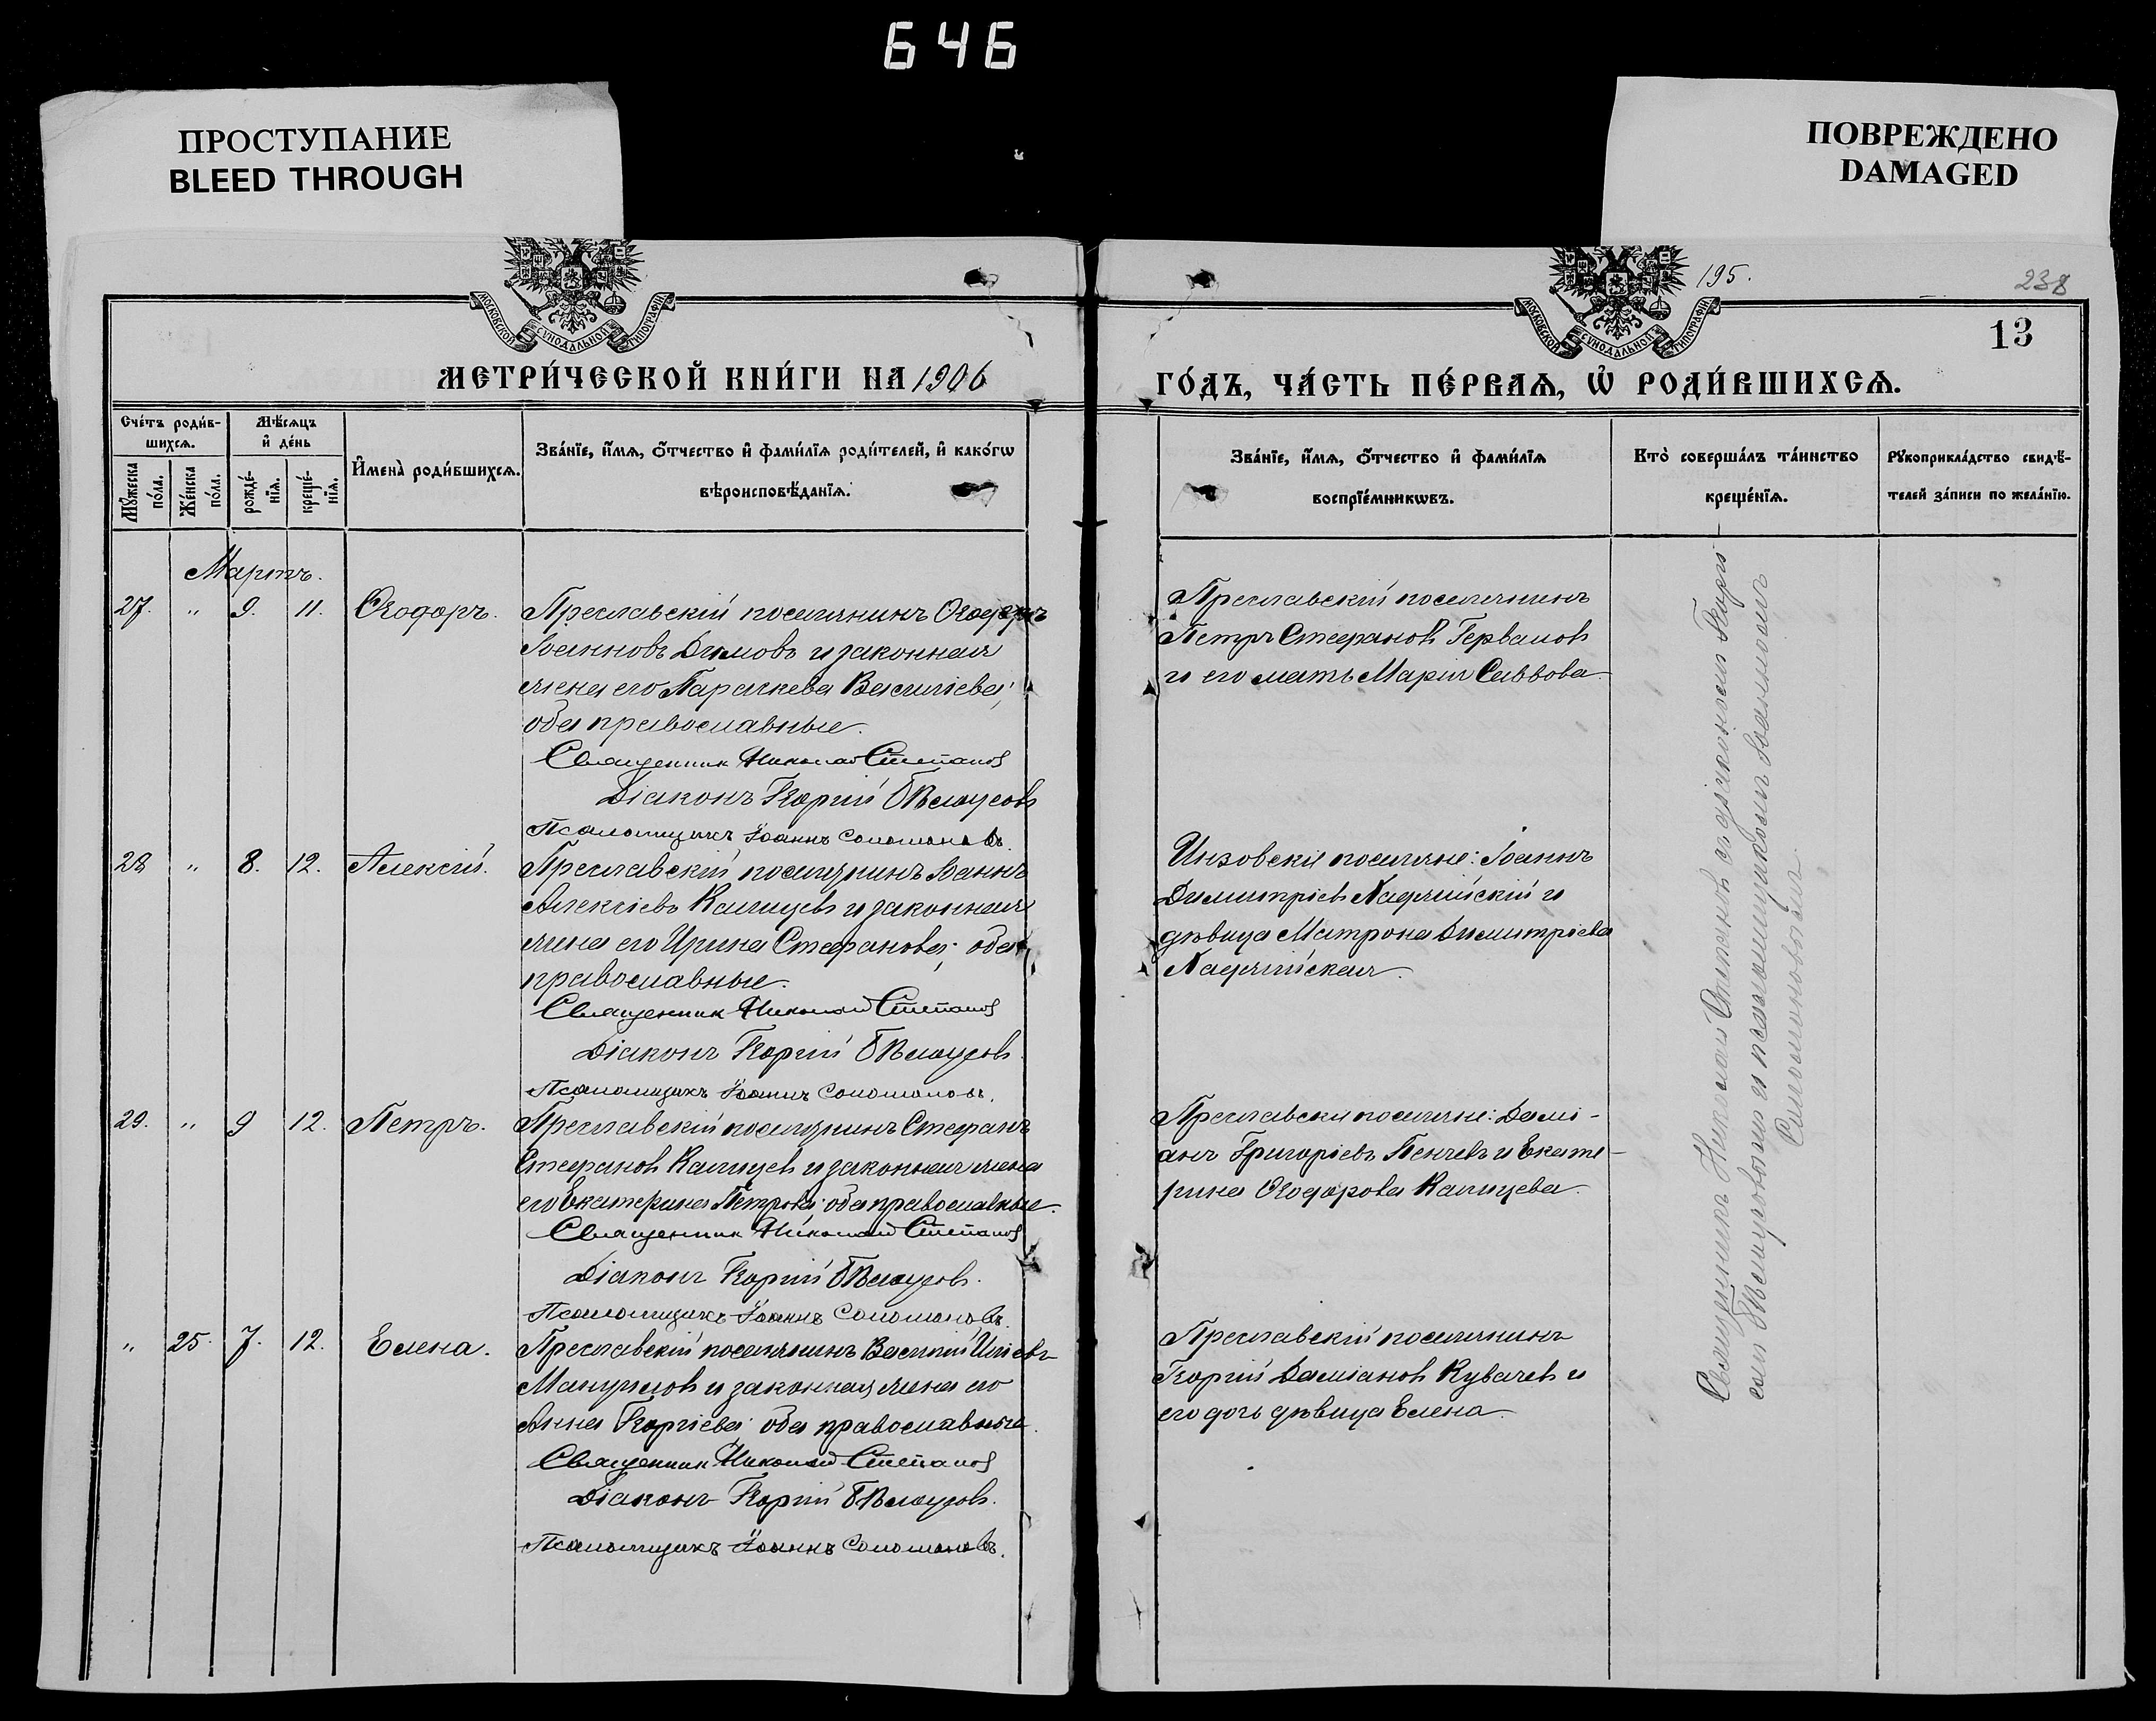 646
ПРОСТУПАНИЕ
BLEED THROUGH
ПОВРЕЖДЕНО
DAMAGED
МОСКОВСКОЙ СѴНОДАЛЬНОЙ ТИПОГРАФІИ
МОСКОВСКОЙ СѴНОДАЛЬНОЙ ТИПОГРАФІИ
195.
238
13
МЕТРИ́ЧЕСКОЙ КНИ́ГИ НА 1906
ГО́ДЪ, ЧА́СТЬ ПЕ́РВАѦ, Ѡ҆ РОДИ́ВШИХСѦ.
Сче́тъ роди́в-
шихсѧ.
Мꙋ́жеска
по́ла.
Же́нска
по́ла.
Мѣ́сѧцъ
и҆ де́нь
рожде́-
нїѧ.
креще́-
нїѧ.
И҆мена̀ роди́вшихсѧ.
Зва́нїе, и҆́мѧ, ѻ҆́тчество и҆ фами́лїѧ роди́телей, и҆ како́гѡ
вѣроисповѣ́данїѧ.
Зва́нїе, и҆́мѧ, ѻ҆́тчество и҆ фами́лїѧ
воспрїе́мникѡвъ.
Кто̀ соверша́лъ та́инство
креще́нїѧ.
Рꙋкоприкла́дство свидѣ́-
телей за́писи по жела́нїю.
Мартъ.
27. " 9. 11. Ѳеодоръ.
Преславскій поселянинъ Ѳеодоръ
Іоанновъ Димовъ и законная
жена его Параскева Василіева;
оба православные.
Священник Николай Степанов
Діаконъ Георгий Бѣлоусовъ
Псаломщикъ Іоаннъ Соломоновъ.
Преславскій поселянинъ
Петръ Стефановъ Гервановъ
и его мать Марія Саввова
28 " 8. 12. Алексій.
Преславскій поселянинъ Іоаннъ
Алексіевъ Калицевъ и законная
жена его Ирина Стефанова; оба
православные.
Священник Николай Степанов
Діаконъ Георгий Бѣлоусовъ.
Псаломщикъ Іоаннъ Соломоновъ.
Инзовскіе поселяне: Іоаннъ
Димитріевъ Хаджійскій и
дѣвица Матрона Димитріева
Хаджійская.
29. " 9 12. Петръ.
Преславскій поселянинъ Стефанъ
Стефановъ Калицевъ и законная жена
его Екатерина Петрова; оба православные.
Священник Николай Степанов
Діаконъ Георгий Бѣлоусовъ.
Псаломщикъ Іоаннъ Соломоновъ.
Преславскіе поселяне: Дамі-
анъ Григоріевъ Пенчевъ и Екате-
рина Ѳеодорова Калицева.
" 25. 7. 12. Елена.
Преславскій поселянинъ Василій Иліевъ
Мануиловъ и законная жена его
Анна Георгіева; оба православные.
Священник Николай Степанов
Діаконъ Георгий Бѣлоусовъ.
Псаломщикъ Іоаннъ Соломоновъ.
Преславскій поселянинъ
Георгій Даміановъ Кувачевъ и
его дочь дѣвица Елена.
Священникъ Николай Степановъ съ діакономъ Георгі-
емъ Бѣлоусовымъ и псаломщикомъ Іоанномъ
Соломоновымъ.